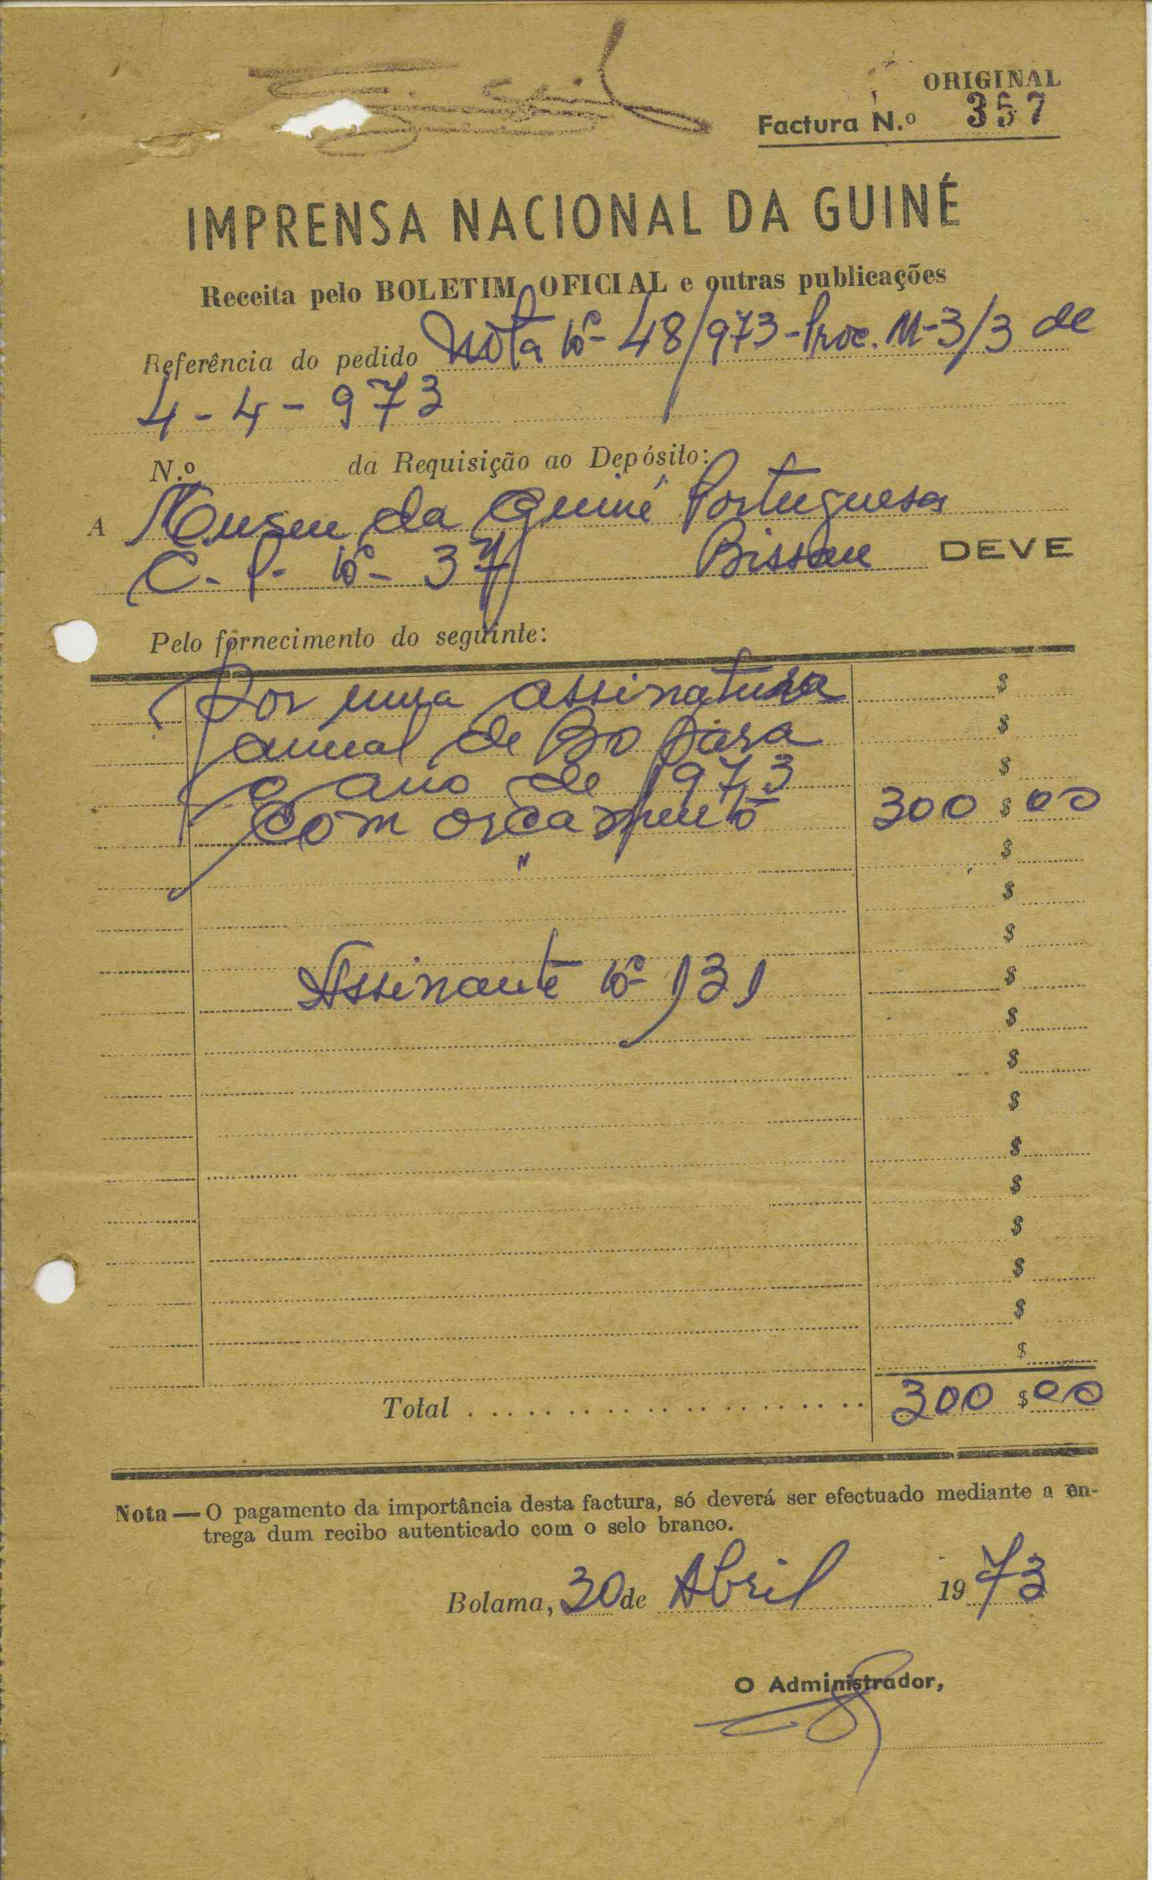 ORIGINAL
Factura N.º 357
IMPRENSA NACIONAL DA GUINÉ
Receita pelo BOLETIM OFICIAL e outras publicações
Referência do pedido Nota Nº 48/973-Proc. M-3/3 de
4-4-973
N.º da Requisição ao Depósito:
A Museu da Guiné Portuguesa
C. P. Nº 37 Bissau DEVE
Pelo fornecimento do seguinte:
Por uma assinatura $
anual de BO para $
o ano de 1973 $
com orçamento 300 $ 00
" $
$
$
Assinante Nº 131 $
$
$
$
$
$
$
$
$
$
Total 300 $ 00
Nota — O pagamento da importância desta factura, só deverá ser efectuado mediante a en-
trega dum recibo autenticado com o selo branco.
Bolama, 30 de Abril 1973
O Administrador,